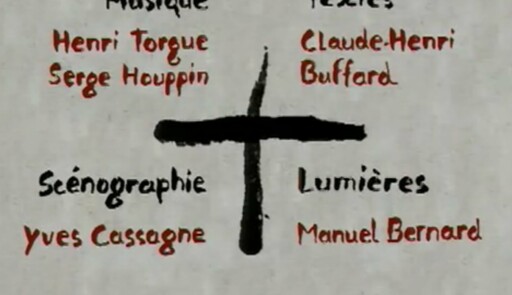 Musique
Textes
Henri Torgue
Serge Houppin
Claude-Henri
Buffard
Scénographie
Yves Cassagne
Lumières
Manuel Bernard